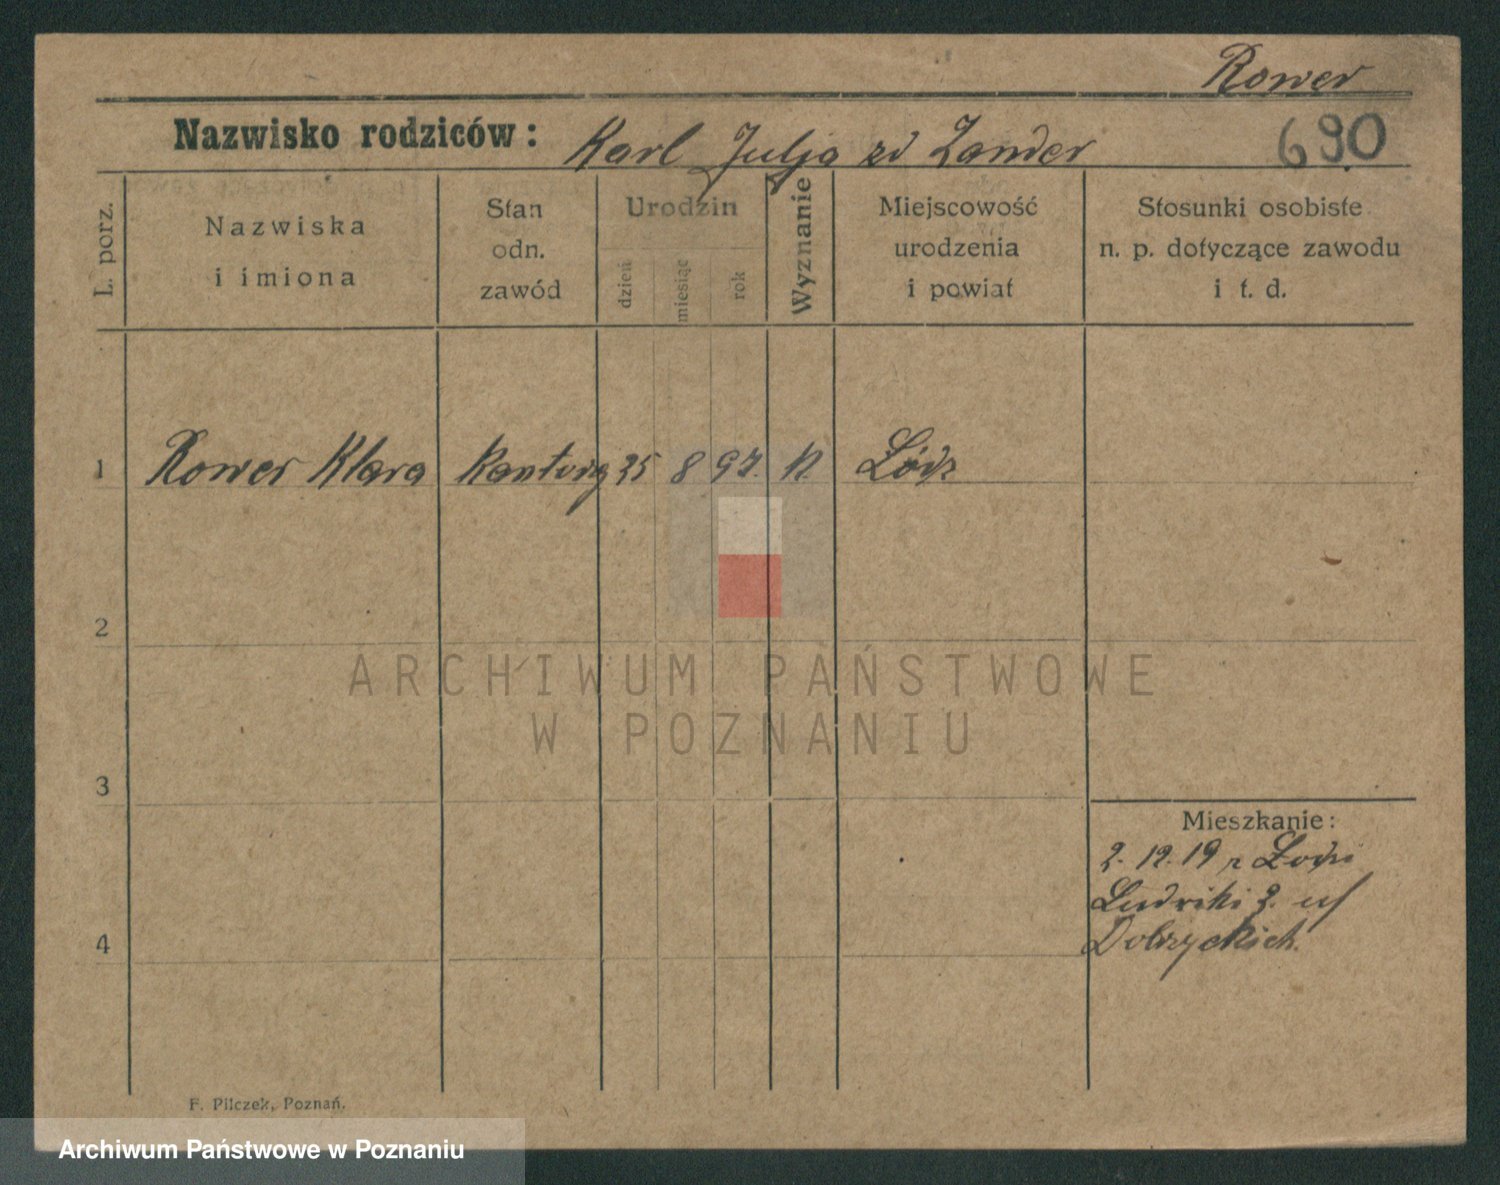 Rower
Nazwisko rodziców: Karl Julja zd Zander
690
L. porz.
Nazwiska
i imiona
Stan
odn.
zawód
Urodzin
dzień
miesiąc
rok
Wyznanie
Miejscowość
urodzenia
i powiat
Stosunki osobiste
n. p. dotyczące zawodu
i t. d.
1 Rower Klara 25 8 97. Łódz
2
ARCHIWUM PAŃSTWOWE
W POZNANIU
3
Mieszkanie:
2. 12. 19 z Łodzi
2. u/
4
Dobrzyckich.
F. Pilczek, Poznań.
Archiwum Państwowe w Poznaniu